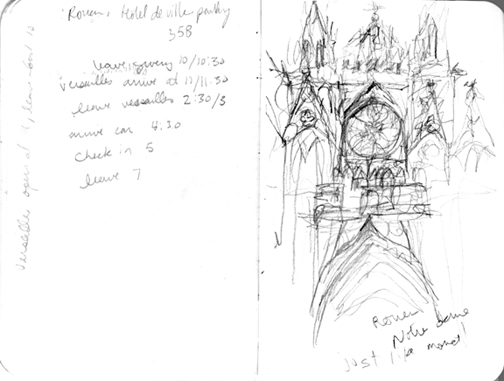 Rouen, Hotel de ville parking
358
leave giverny 10/10:30
versailles arrive at 11/11:30
leave versailles 2:30/3
arrive car 4:30
check in 5
leave 7
versailles open at 9, leave
Rouen
Notre Dame
just like monet!